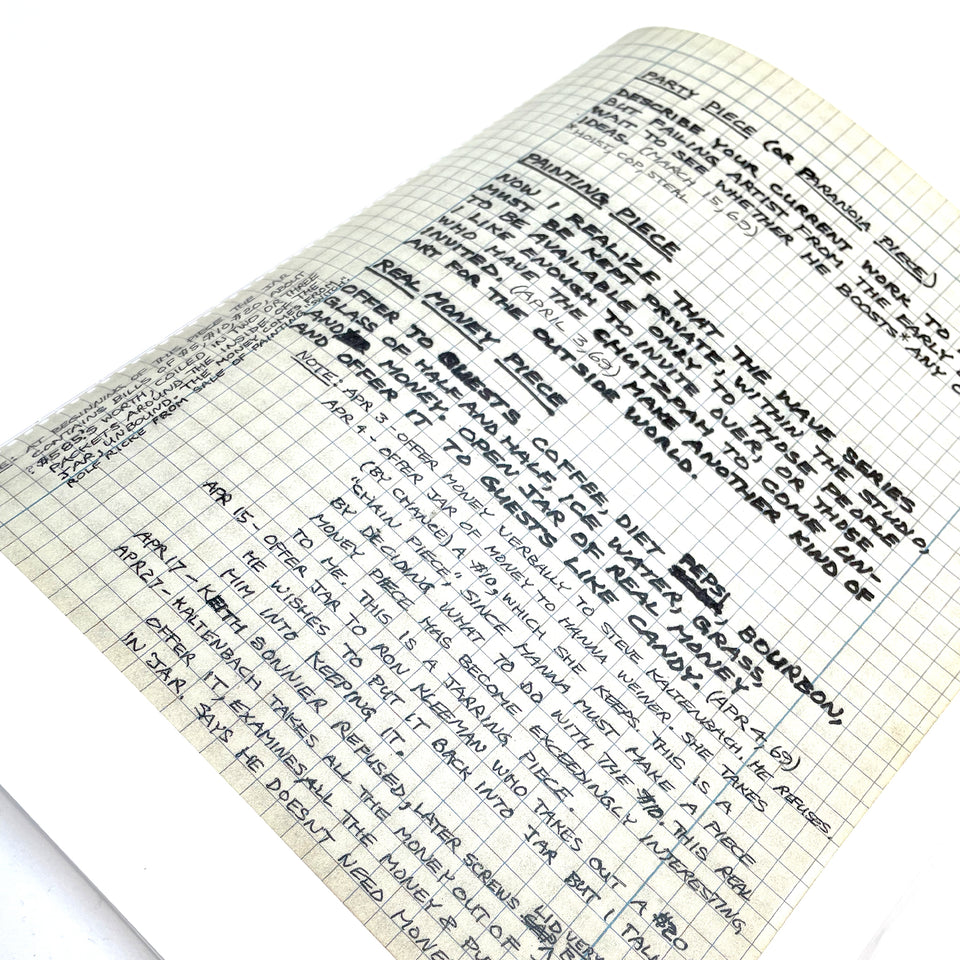 PARTY PIECE (OR PARANOIA PIECE)
DESCRIBE YOUR CURRENT WORK TO
BUT FAILING ARTIST FROM THE EARLY
WAIT TO SEE WHETHER HE BOOSTS* ANY
IDEAS. (MARCH 5, 69)
*HOIST, COP, STEAL
PAINTING PIECE
NOW I REALIZE THAT THE WAVE SERIES
MUST BE KEPT PRIVATE, WITHIN THE STUDIO,
TO BE AVAILABLE ONLY TO THOSE PEOPLE
I LIKE ENOUGH TO INVITE OVER, OR THOSE
WHO HAVE THE CHUTZPAH TO COME UN-
INVITED. (APRIL 3, 69) MAKE ANOTHER KIND OF
ART FOR THE OUTSIDE WORLD.
REAL MONEY PIECE
OFFER TO GUESTS COFFEE, DIET PEPSI, BOURBON,
GLASS OF HALF AND HALF, ICE WATER, GRASS,
AND MONEY. OPEN JAR OF REAL MONEY
AND OFFER IT TO GUESTS LIKE CANDY. (APR 4, 69)
NOTE: APR 3 OFFER MONEY VERBALLY TO STEVE KALTENBACH, HE REFUSES.
APR 4 - OFFER JAR OF MONEY TO HANNA WEINER. SHE TAKES
(BY CHANCE) A $10, WHICH SHE KEEPS. THIS IS A
"CHAIN PIECE," SINCE HANNA MUST MAKE A PIECE
BY DECIDING WHAT TO DO WITH THE $10. THIS REAL
MONEY PIECE HAS BECOME EXCEEDINGLY INTERESTING,
TO ME. THIS IS A JARRING PIECE.
APR 15 - OFFER JAR TO RON NEEMAN WHO TAKES OUT A $20
HE WISHES TO PUT IT BACK INTO JAR BUT I TALK
HIM INTO KEEPING IT.
APR 17 - KEITH BONNIER REFUSED, LATER SCREWS LID VERY
APR 27 - KALTENBACH TAKES ALL THE MONEY OUT OF
OFFER IT, EXAMINES ALL THE MONEY &
IN JAR. SAYS HE DOESNT NEED
AT BEGINNING OF THE PIECE THE JAR
CONTAINS BILLS OF $5, $10, $20, ABOUT
WORTH, COILED IN TWO OR THREE
PACKETS AROUND THE INSIDE OF THE
JAR, UNBOUND. THE MONEY COMES FROM
SALE OF PAINTING
FROM